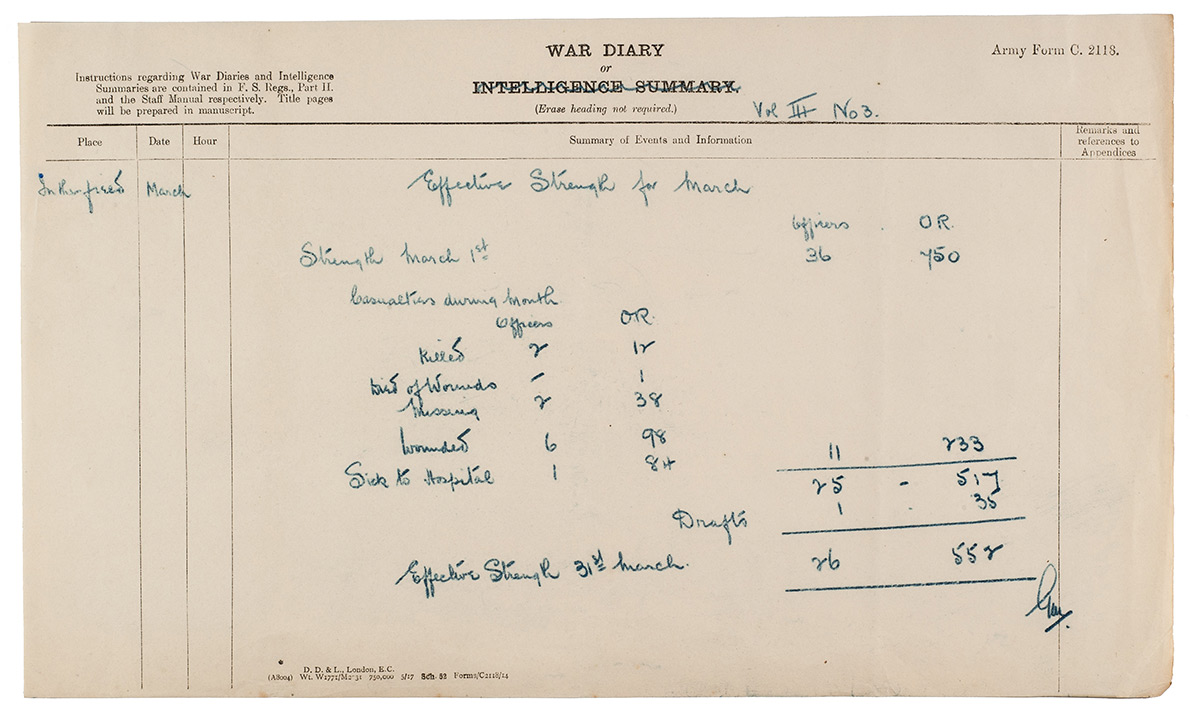 WAR DIARY
or
INTELLIGENCE SUMMARY.
(Erase heading not required.)
Army Form C. 2118.
Instructions regarding War Diaries and Intelligence
Summaries are contained in F. S. Regs., Part II.
and the Staff Manual respectively. Title pages
will be prepared in manuscript.
Vol III No 3.
Place Date Hour Summary of Events and Information Remarks and
references to
Appendices
In the field March Effective Strength for March
Officers . O.R.
Strength March 1st 36 750
Casualties during Month.
Officers O.R.
Killed 2 12
Died of Wounds - 1
Missing 2 38
Wounded 6 98
11 233
Sick to Hospital 1 84
25 - 517
Drafts 1 . 35
Effective Strength 31st March. 26 552
D. D. & L., London, E.C.
(A8004) Wt. W1771/M2·31 750,000 5/17 Sch. 52 Forms/C2118/14